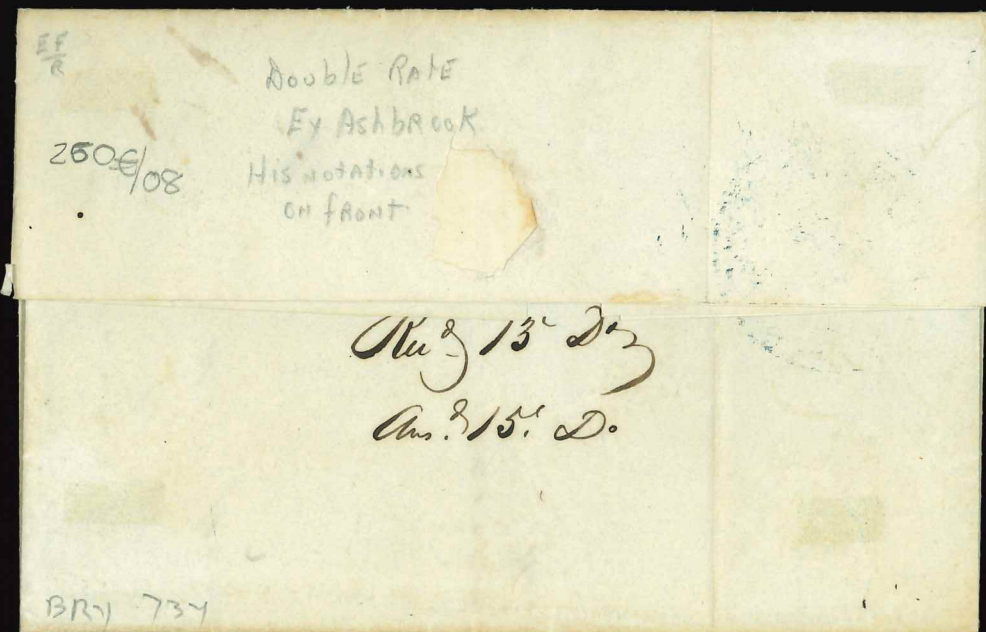 EF
R
Double Rate
Ex Ashbrook
His notations
on front
260€/08
Recd 13 Do
Ans.d 15. Do
BRY 734